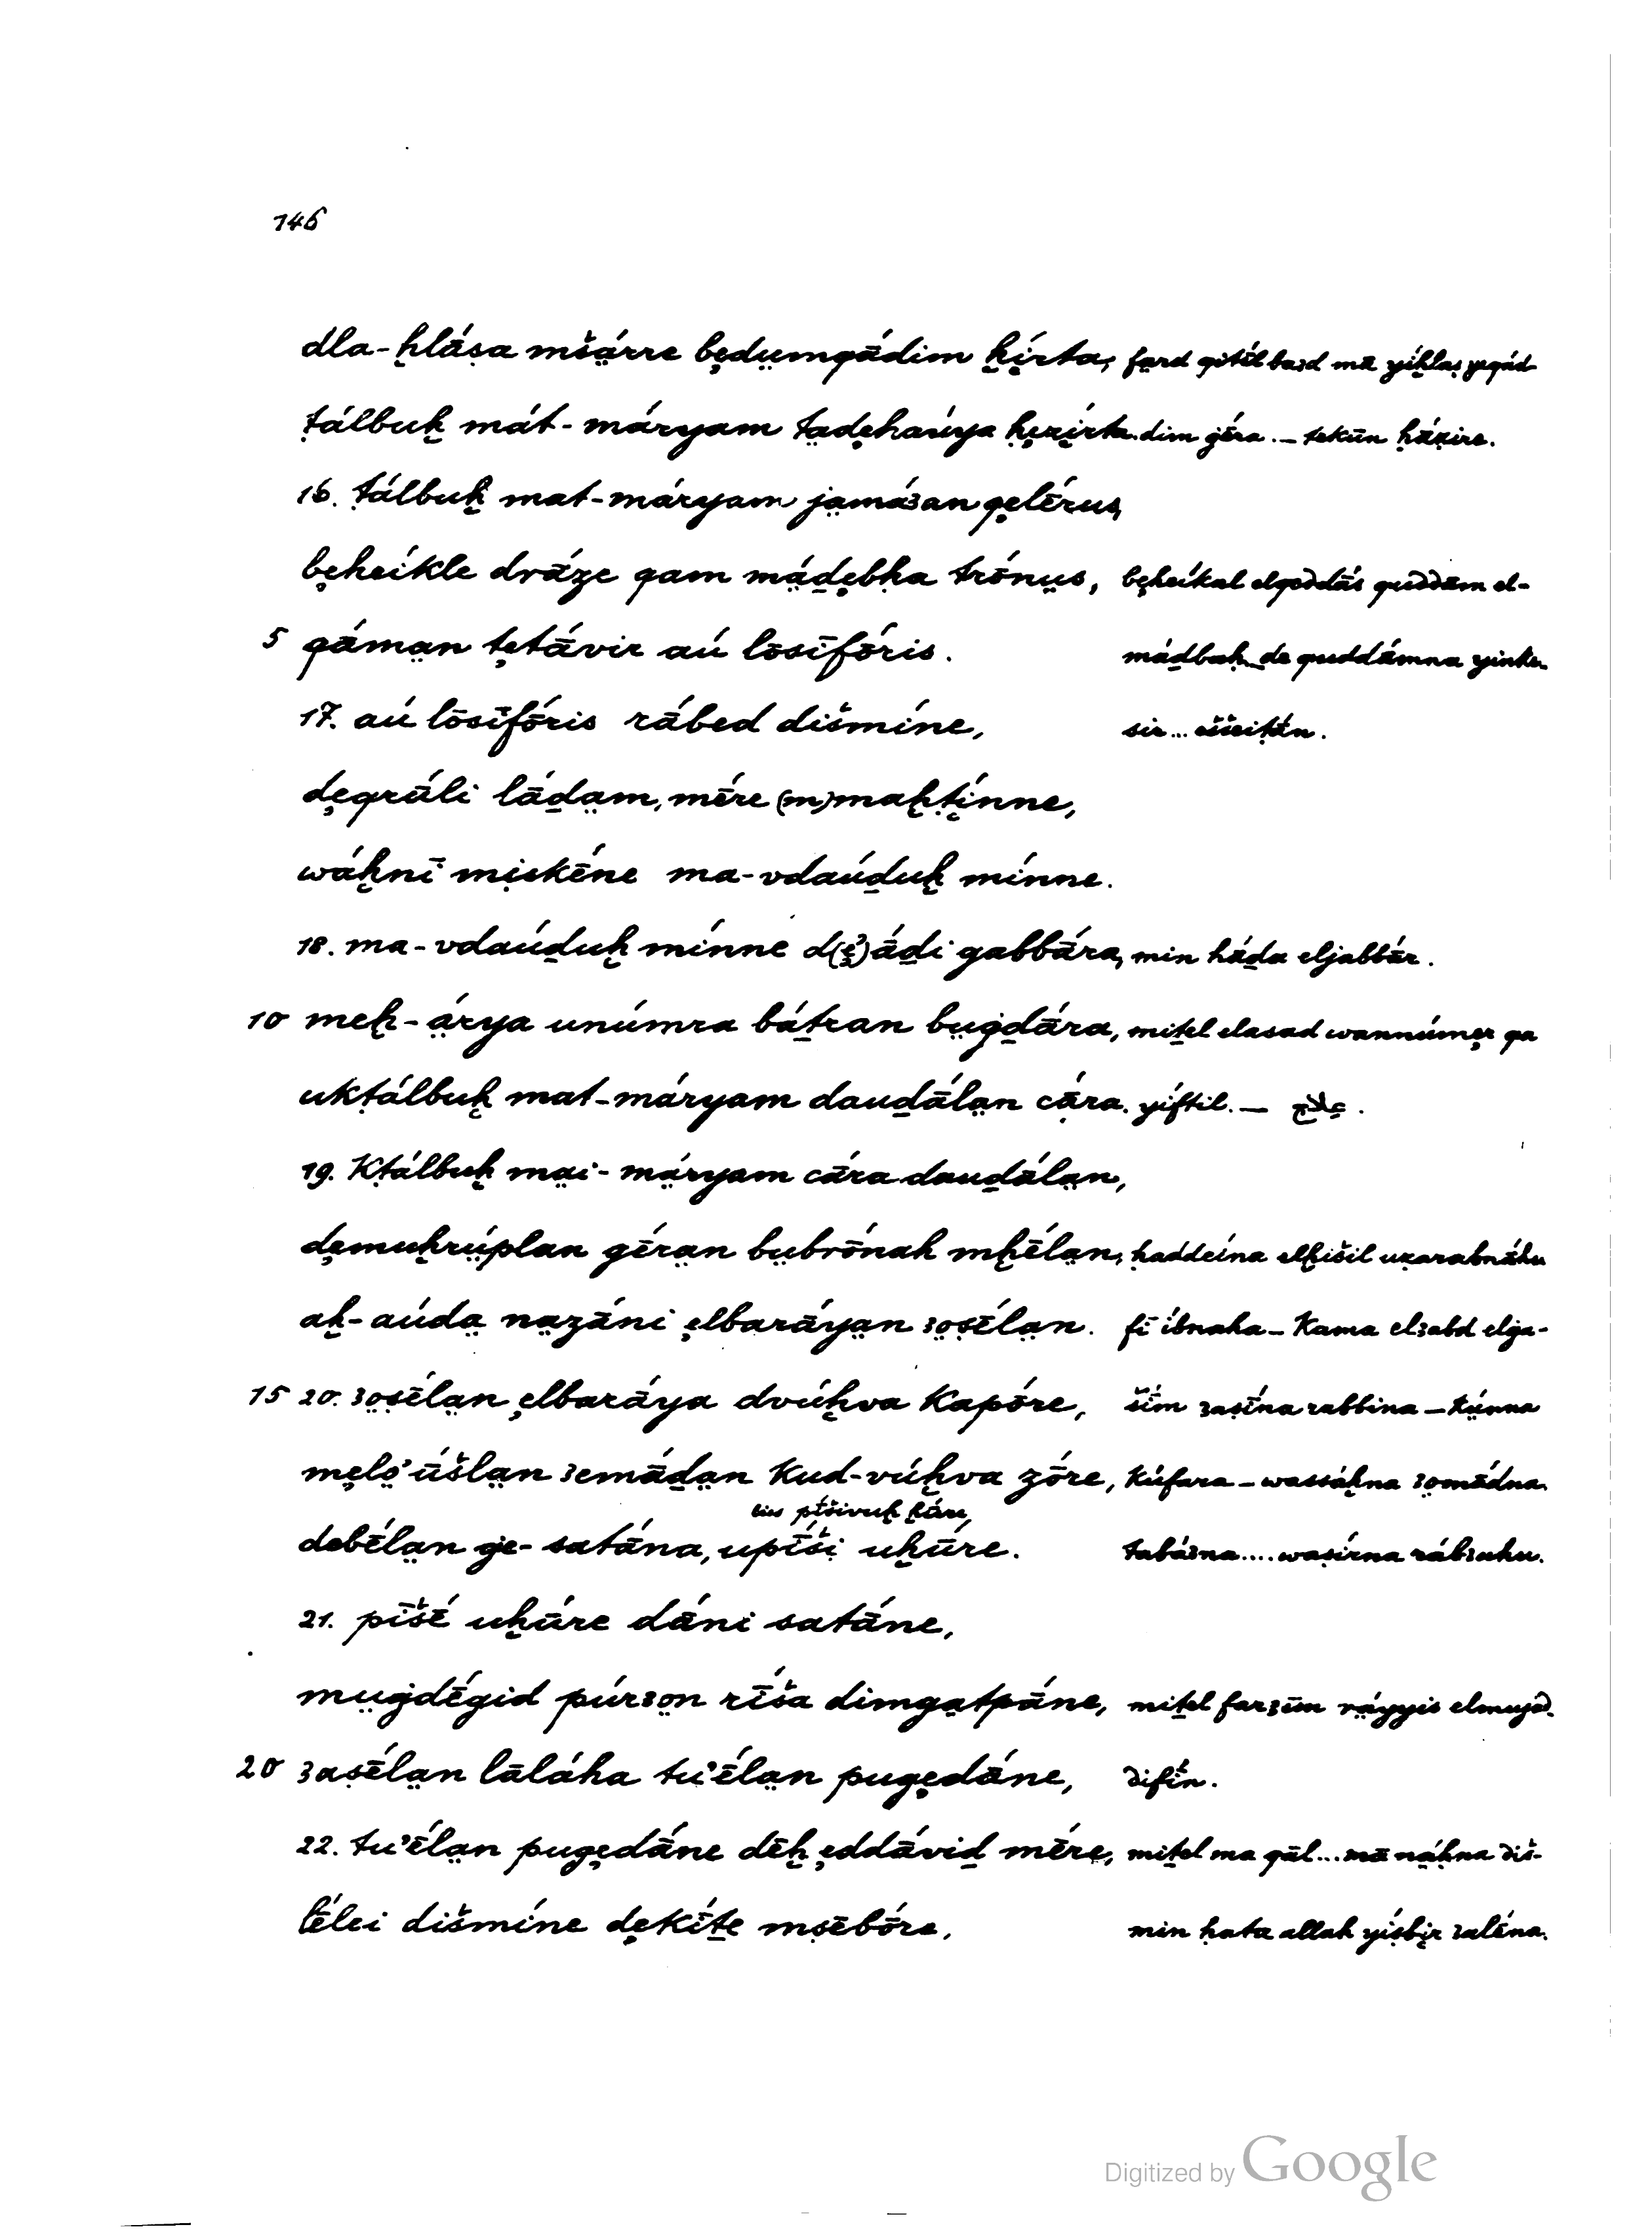 146
dla-ḫlā́ṣa mšä́rre będumqā́dim ḫį́rta, färd qitḗl baʒd mā yíḫlaṣ yeqád-
ṭálbuḫ mát-máryam tädęhaúya ḥęẓírta. dim ġḗra. – tekūn ḥā́ẓire.
16. ṭálbuḫ mat-máryam jämā́ʒan qęlḗrus,
bęheíkle drā́ze qam mä́ḏębḥa trṓnus, bęheíkal elqoddā́s quddām el-
5 qā́män ṭętā́vir aú lōsīfṓris. máḏbaḥ de quddā́mna yinke-
17. aú lōsīfṓris rā́bed dišmíne, sir... eššeiṭā́n.
dęqrū́li lā́ḏäm, mḗre (m)maḫṭį́nne,
wáḫnī miskḗne ma-vdaúḏuḫ mínne.
18. ma-vdaúḏuḫ mínne d(ę̓)ā́ḏi gabbā́ra, min hā́ḏa eljabbā́r.
10 meḫ-ä́rya unúmra bā́ṯran buġḏā́ra, miṯel elasad wannúmęr qa
ukṭálbuḫ mat-máryam dauḏā́län cā́ra. yíftil. – علاج.
19. Kṭálbuḫ mäi-mä́ryam cā́ra dauḏā́län,
dęmuḫrúplan gḗrän bubrṓnah mḫḗlän, ḥaddeína elḫišil uẓarabnā́hu
aḫ-aúdä näzā́ni ęlbarā́yän ʒoṣḗlän. fī íbnaha – Kama elʒabd elġa-
15 20. ʒoṣḗlän ęlbarā́ya dvúḫva Kapṓre, šī́m ʒaṣī́na rabbina – Kúnna
męlọ̓ū́šlän ʒemā́ḏän Kud-vúḫva zṓre, Kúfara – wassáḫna ʒomā́dna.
bis pīšivuḫ ḫūre,
debḗlän ġe-satā́na, upī́ši uḫū́re. tabáʒna.... waṣírna rábʒuhu.
21. pīšḗ uḫū́re dā́ni satā́ne,
muġdḗgid púrʒon rī́ša dimgatpā́ne, miṯel farʒūn räyyis elmujd.
20 ʒaṣḗlän lālā́ha tu’ḗlän pugędā́ne, difī́n.
22. tu’ḗlän pugędā́ne dēḫ ęddā́viḏ mḗre, miṯel ma qāl... mā náḥna diš-
lḗlei dišmíne dękī́ṯe mṣēbṓre, min ḥata allah yíṣbįr ʒalḗna.
Digitized by Google